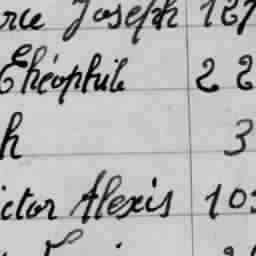 rce Joseph 127
Théophile 22
h 3
ictor Alexis 103